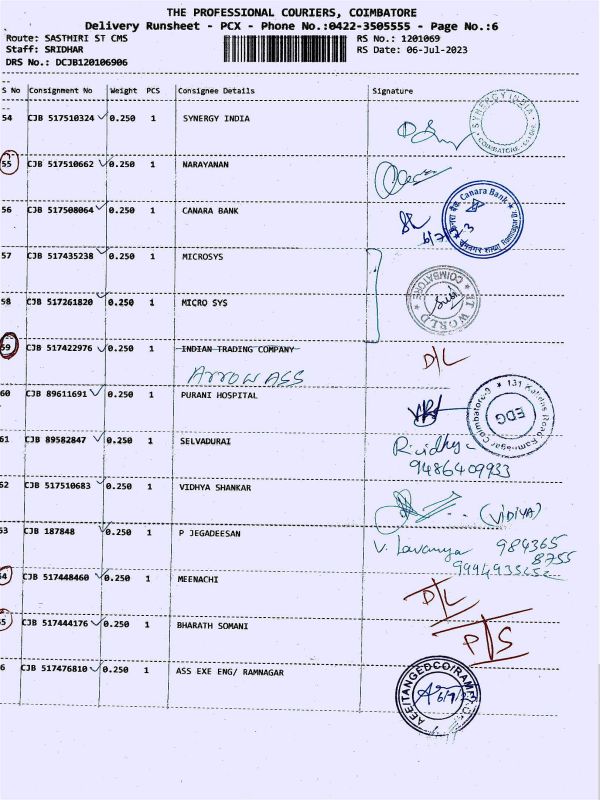 THE PROFESSIONAL COURIERS, COIMBATORE
Delivery Runsheet - PCX - Phone No.:0422-3505555 - Page No.:6
Route: SASTHIRI ST CMS RS No.: 1201069
Staff: SRIDHAR RS Date: 06-Jul-2023
DRS No.: DCJB120106906
S No Consignment No Weight PCS Consignee Details Signature
54 CJB 517510324 0.250 1 SYNERGY INDIA
SYNERGY INDIA COIMBATORE
55 CJB 517510662 0.250 1 NARAYANAN
56 CJB 517508064 0.250 1 CANARA BANK
Canara Bank Ramnagar
57 CJB 517435238 0.250 1 MICROSYS
58 CJB 517261820 0.250 1 MICRO SYS
IT WORLD COIMBATORE
59 CJB 517422976 0.250 1 INDIAN TRADING COMPANY D/L
Arrow ASS
60 CJB 89611691 0.250 1 PURANI HOSPITAL
131 Kalidas Road Ramnagar Coimbatore-9 EDG
61 CJB 89582847 0.250 1 SELVADURAI R.vidhya
9486409933
62 CJB 517510683 0.250 1 VIDHYA SHANKAR
(VIDIYA)
63 CJB 187848 0.250 1 P JEGADEESAN V. Lavanya 984365
8755
64 CJB 517448460 0.250 1 MEENACHI D/L
65 CJB 517444176 0.250 1 BHARATH SOMANI P/S
6 CJB 517476810 0.250 1 ASS EXE ENG/ RAMNAGAR
AEE/TANGEDCO/RAMN